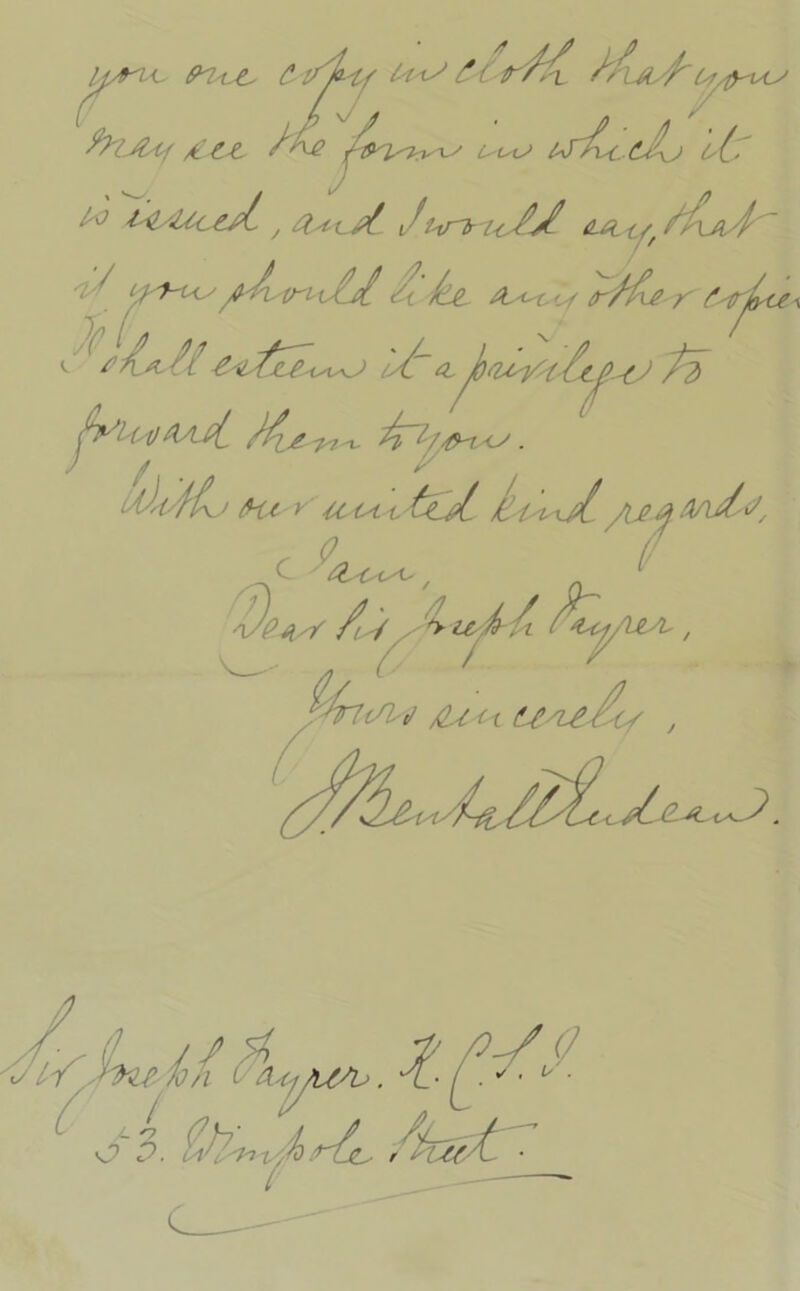 you one copy in cloth that you
may see the form in which it
is issued, and I would say, that
if you should like any other copies
I shall esteem it a privilege to
forward them to you.
With our united kind regards,
I am,
Dear Sir Joseph Fayrer,
Yours sincerely,
Sir Joseph Fayrer. K.C.S.I.
53. Wimpole Street.